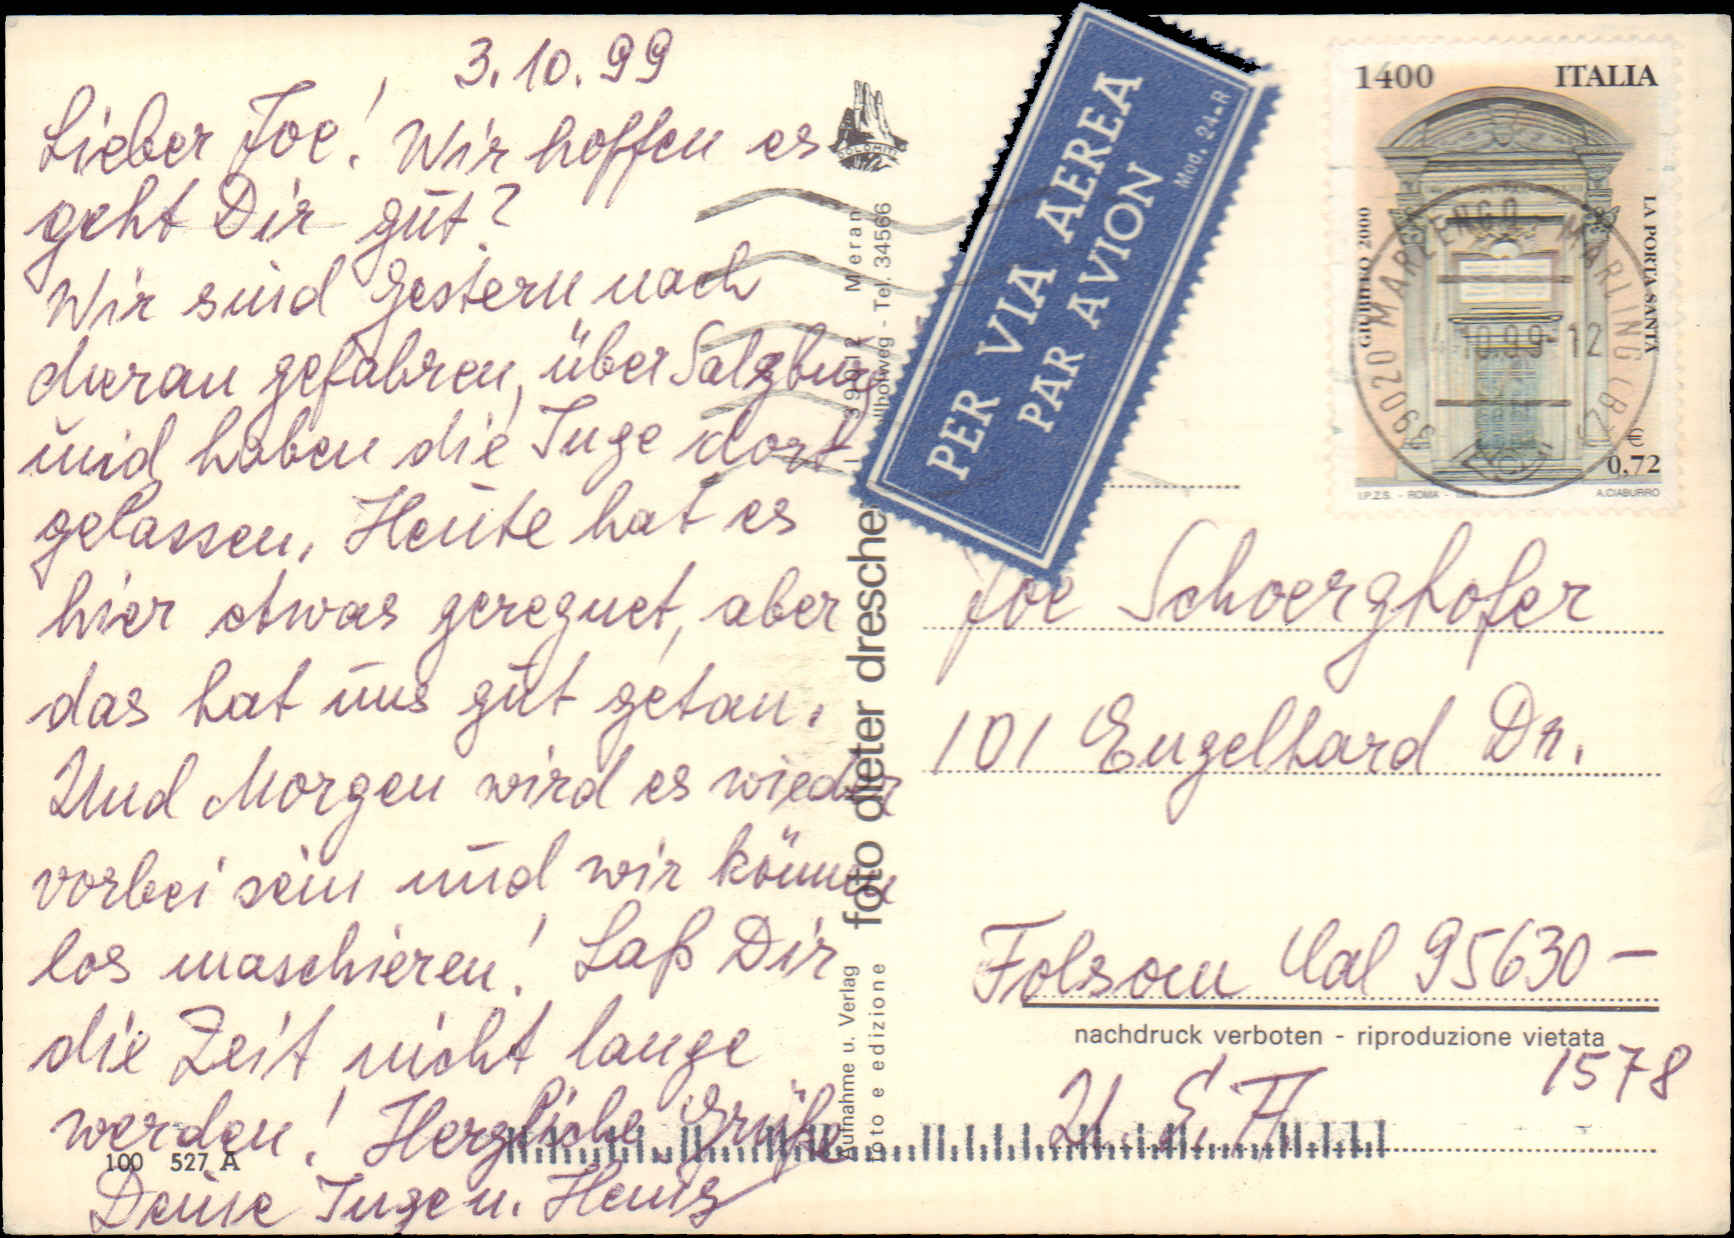 3.10.99
Lieber Joe! Wir hoffen es
geht Dir gut?
Wir sind Gestern nach
Meran gefahren, über Salzburg
und haben die Inge dort
gelassen, Heute hat es
hier etwas geregnet, aber
das hat uns gut getan.
Und Morgen wird es wieder
vorbei sein und wir können
los maschieren! Laß Dir
die Zeit nicht lange
werden! Herzliche Grüße
Deine Inge u. Heinz
100 527 A
DOLOMITI
Meran
Tel. 34566
foto dieter dresche
Aufnahme u. Verlag
foto e edizione
PER VIA AEREA
PAR AVION
Mod. 24-R
1400 ITALIA
GIUBILEO 2000
LA PORTA SANTA
€
0,72
I.P.Z.S. - ROMA -
A.CIABURRO
39020 MARLENGO MARLING (BZ)
4.10.99-12
Joe Schoerghofer
101 Engelhard Dr.
Folsom Cal 95630-
nachdruck verboten - riproduzione vietata
1578
U.S.A